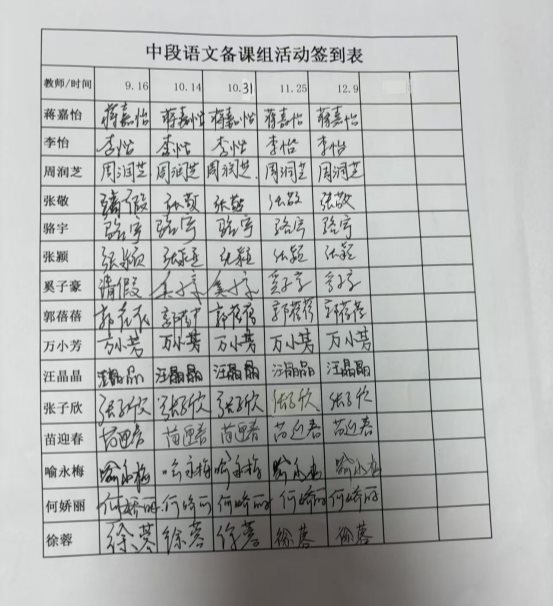 中段语文备课组活动签到表
教师/时间 9.16 10.14 10.31 11.25 12.9
蒋嘉怡 蒋嘉怡 蒋嘉怡 蒋嘉怡 蒋嘉怡 蒋嘉怡
李怡 李怡 李怡 李怡 李怡 李怡
周润芝 周润芝 周润芝 周润芝 周润芝 周润芝
张敬 请假 张敬 张敬 张敬 张敬
骆宇 骆宇 骆宇 骆宇 骆宇 骆宇
张颖 张颖 张颖 张颖 张颖 张颖
奚子豪 请假 奚子豪 奚子豪 奚子豪 奚子豪
郭蓓蓓 郭蓓蓓 郭蓓蓓 郭蓓蓓 郭蓓蓓 郭蓓蓓
万小芳 万小芳 万小芳 万小芳 万小芳 万小芳
汪晶晶 汪晶晶 汪晶晶 汪晶晶 汪晶晶 汪晶晶
张子欣 张子欣 张子欣 张子欣 张子欣 张子欣
苗迎春 苗迎春 苗迎春 苗迎春 苗迎春 苗迎春
喻永梅 喻永梅 喻永梅 喻永梅 喻永梅 喻永梅
何娇丽 何娇丽 何娇丽 何娇丽 何娇丽 何娇丽
徐蓉 徐蓉 徐蓉 徐蓉 徐蓉 徐蓉